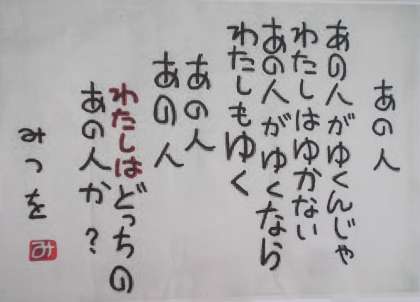 あの人
あの人がゆくんじゃ
わたしはゆかない
あの人がゆくなら
わたしもゆく
あの人
あの人
わたしはどっちの
あの人か?
みつを
み